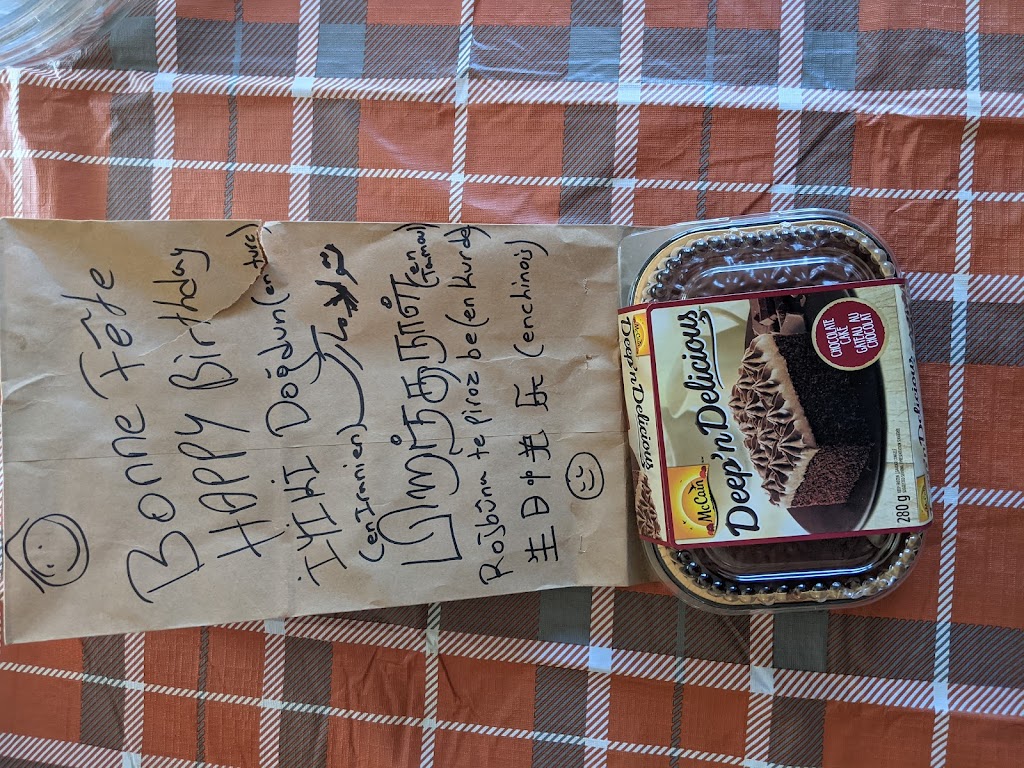 Bonne Fête
HAPPY Birthday
İYİKİ Doğdun (en ture)
(en Iranien)
பிறந்தநாள் (en Tamoul)
Rojbûna te piroz be (en kurde)
生日快乐 (en chinois)
McCain
Deep'n Delicious
McCain
Deep'n Delicious
CHOCOLATE
CAKE
GÂTEAU AU
CHOCOLAT
280 g
Deep'n Delicious